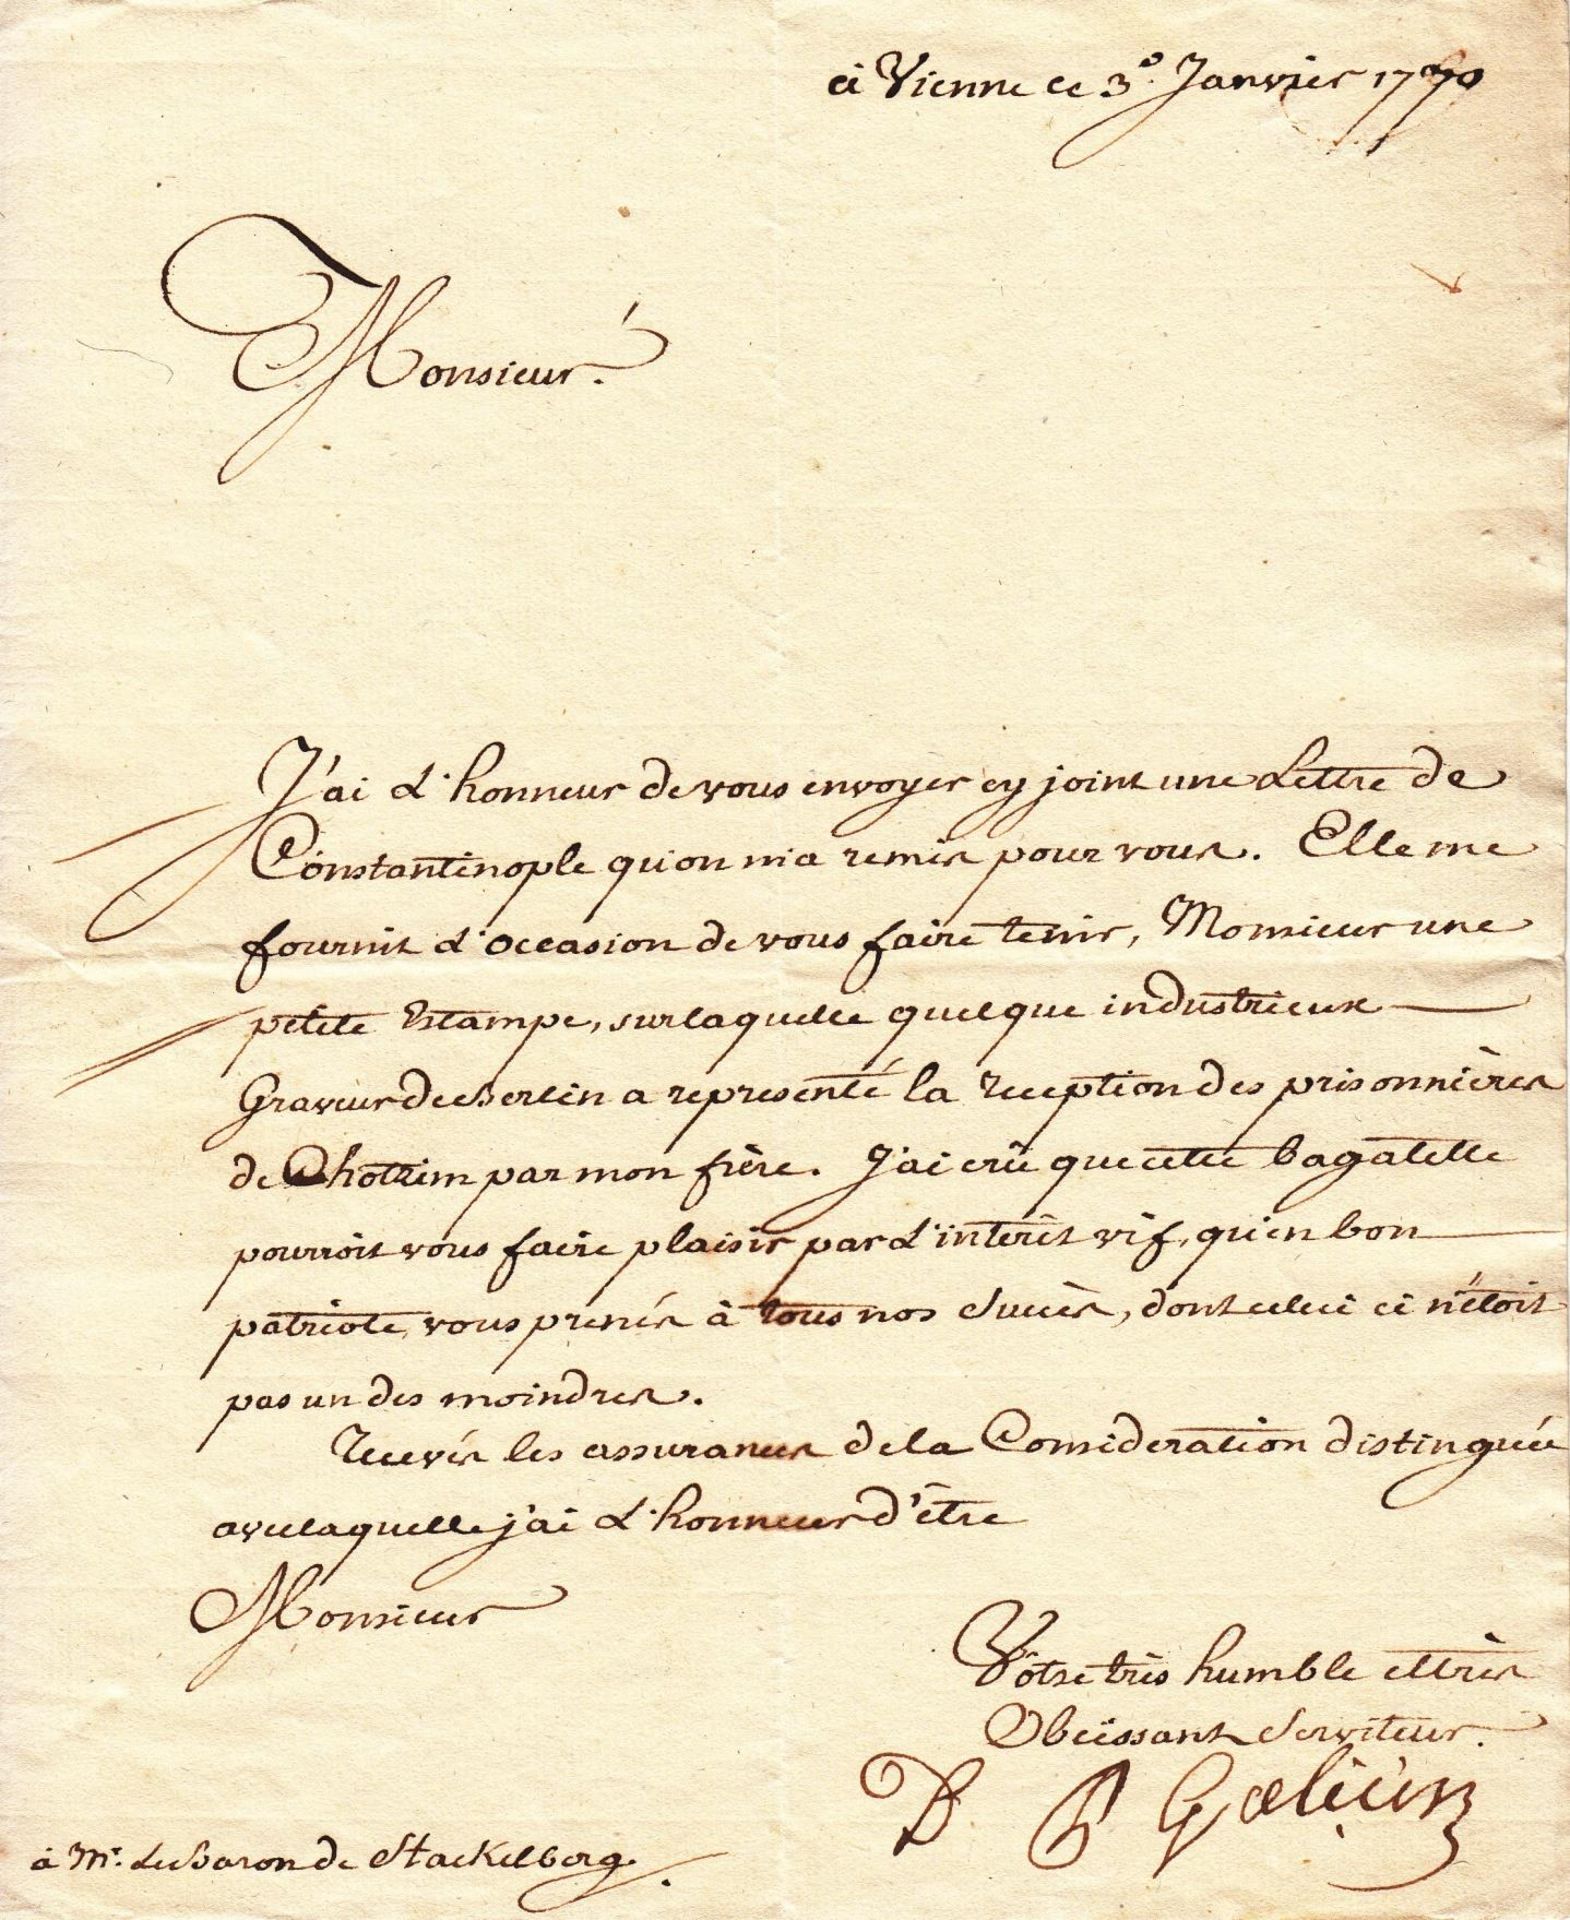 à Vienne ce 3e. Janvier 1770
Monsieur.
J'ai l'honneur de vous envoyer cy joint une Lettre de
Constantinople qu'on m'a remis pour vous. Elle me
fournit l'occasion de vous faire tenir, Monsieur une
petite Estampe, sur laquelle quelque industrieux
Graveur de Berlin a representé la reception des prisonnières
de Chotzim par mon frère. J'ai crû que cette bagatelle
pourroit vous faire plaisir par l'intérêt vif, qu'en bon
patriote, vous prenés à tous nos Succès, dont celui ci n'étoit
pas un des moindres.
Recevés les assurances de la Consideration distinguée
avec laquelle j'ai l'honneur d'être
Monsieur
Vôtre très humble et très
Obeissant Serviteur.
D P Galiczin
à Mr. Le Baron de Stackelberg.